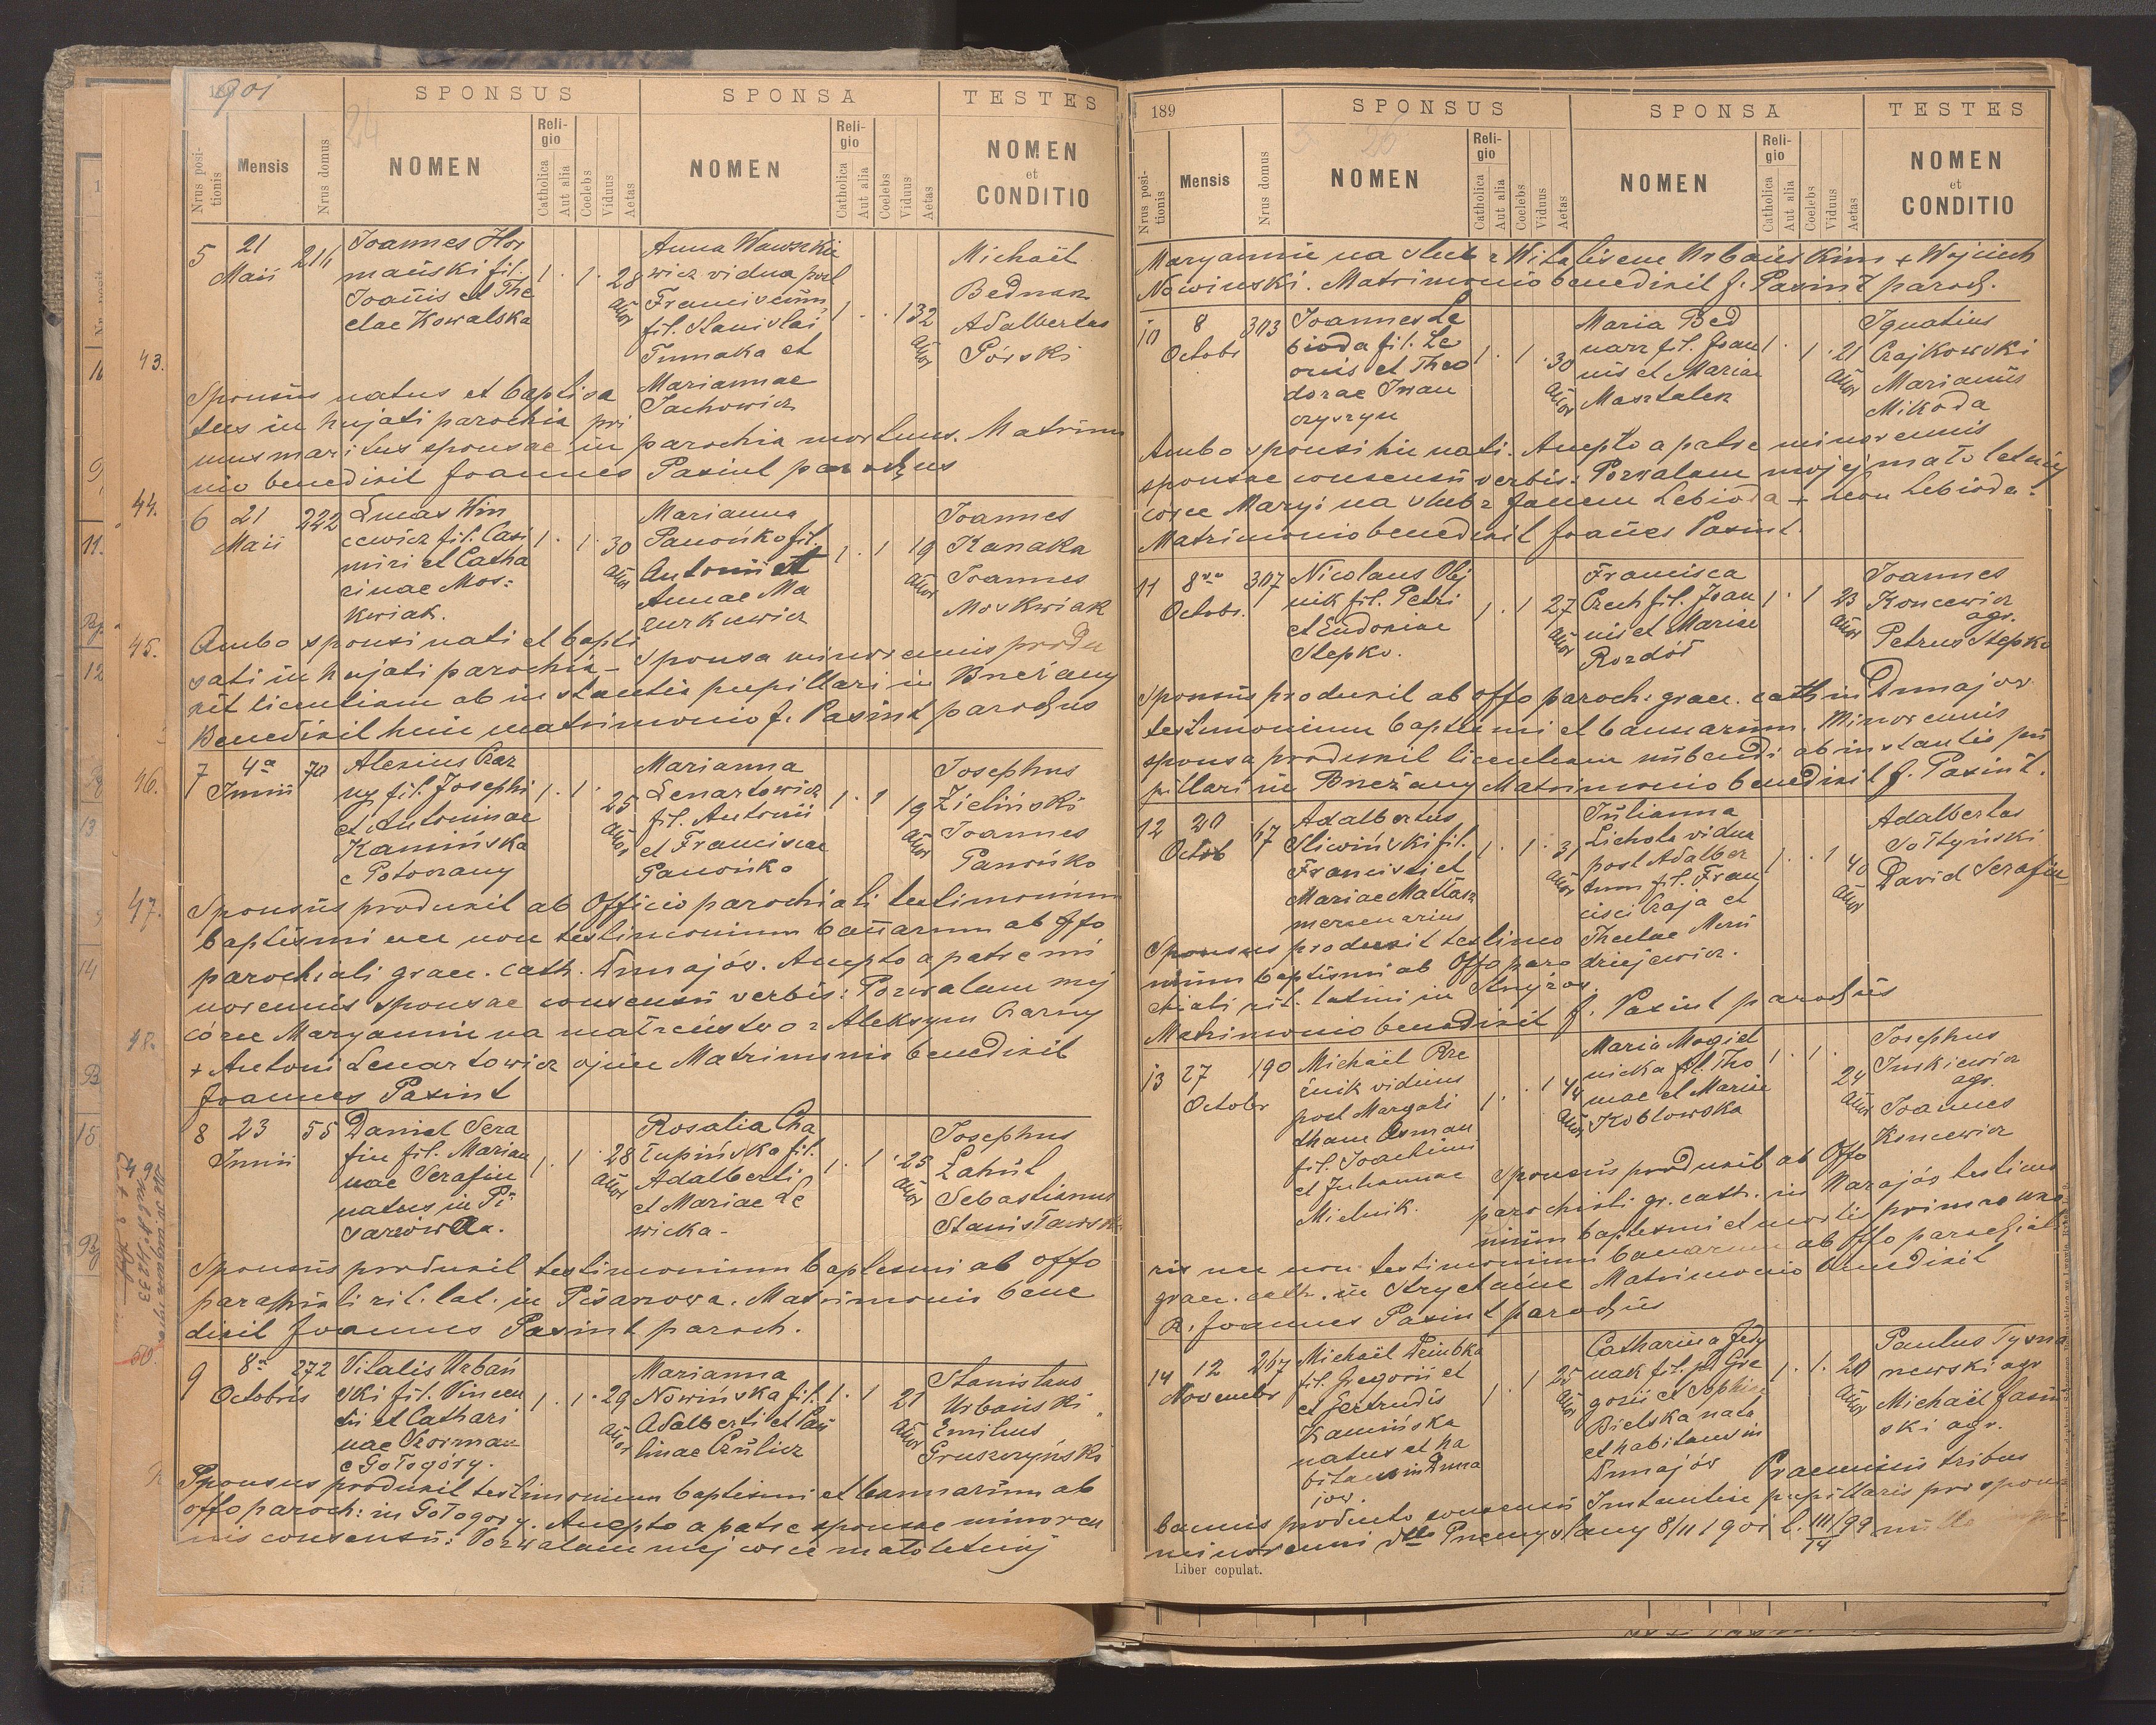 1901
SPONSUS SPONSA TESTES
Nrus positionis Mensis Nrus domus NOMEN Religio Catholica Aut alia Coelebs Viduus Aetas NOMEN Religio Catholica Aut alia Coelebs Viduus Aetas NOMEN et CONDITIO
24
5 21 Maii 211
Joannes Hor
mański fil.
Joannis et The
clae Kowalska
1 . 1 . 28 annor
Anna Wawrzkie
wicz vidua post
Franciscum
fil. Stanislai
Tumaka et
Mariannae
Jachowicz
1 . . 1 32 annor
Michaël
Bednarz
Adalbertus
Górski
Sponsus natus et baptisa
tus in hujati parochia pri
mus maritus sponsae in parochia mortuus. Matrimo
nio benedixit Joannes Paxint parochus
6 21 Maii 222
Lucas Win
cewicz fil. Casi
miri et Catha
rinae Mos=
kwiak.
1 . 1 . 30 annor
Marianna
Panońko fil.
Antonii et
Annae Ma
zurkiewicz
1 . 1 19 annor
Joannes
Kanaka
Joannes
Moskwiak
Ambo sponsi nati et bapti
sati in hujati parochia - Sponsa minorennis produ
xit licentiam ab instantia pupillari in Brzeżany
Benedixit huic matrimonio J. Paxint parochus
7 4a Junii 70
Alexius Czar
ny fil. Josephi
et Antoninae
Kamińska
e Potoczany
1 . 1 . 25 annor
Marianna
Lenartowicz
fil. Antonii
et Franciscae
Panońko
1 . 1 19 annor
Josephus
Zieliński
Joannes
Panońko
Sponsus produxit ab Officio parochiali testimonium
baptismi nec non testimonium bannarum ab offo
parochiali graec. cath. Dunajów. Accepto a patre mi
norennis sponsae consensu verbis: Pozwalam mej
córce Maryannie na małżeństwo z Aleksym Czarny
+ Antoni Lenartowicz ojciec Matrimonio benedixit
Joannes Paxint
8 23 Junii 55
Daniel Sera
fin fil. Marian
nae Serafin
natus in Pi
sarówka.
1 . 1 . 28 annor
Rosalia Cha
łupińska fil.
Adalberti
et Mariae Le
wicka -
1 . 1 . 23 annor
Josephus
Łahit
Sebastianus
Stanisławski
Sponsus produxit testimonium baptismi ab offo
parochiali rit. lat. in Pisarzowa. Matrimonio bene
dixit Joannes Paxint paroch.
9 8a Octobris 272
Vitalis Urbań
ski fil. Vincen
tii et Cathari
nae Szorman
e Gołogóry.
1 . 1 . 29 annor
Marianna
Nowińska fil.
Adalberti et Pau
linae Czülicz
1 . 1 21 annor
Stanislaus
Urbański
Emilius
Gruszczyński
Sponsus produxit testimonium baptismi et bannarum ab
offo paroch: in Gołogóry. Accepto a patre sponsae minoren
nis consensu: Pozwalam mej córce małoletniej
43.
44.
45.
46.
47.
48.
50.
189
SPONSUS SPONSA TESTES
Nrus positionis Mensis Nrus domus NOMEN Religio Catholica Aut alia Coelebs Viduus Aetas NOMEN Religio Catholica Aut alia Coelebs Viduus Aetas NOMEN et CONDITIO
Maryannie na ślub z Witalisem Urbańskim + Wojciech
Nowiński. Matrimonio benedixit J. Paxint paroch.
10 8 Octobr 303
Joannes Le
bioda fil. Le
onis et Theo
dorae Iwan
czyszyn
1 . 1 . 30 annor
Maria Bed
narz fil. Joan
nis et Mariae
Masztalerz
1 . 1 . 21 annor
Ignatius
Czajkowski
Marianus
Mikoda
Ambo sponsi hic nati. Accepto a patre minorennis
sponsae consensu verbis: Pozwalam mojej małoletniej
córce Maryi na ślub z Janem Lebioda + Leon Lebioda.
Matrimonio benedixit Joannes Paxint.
11 8va Octobr. 307
Nicolaus Olej
nik fil. Petri
et Eudoxiae
Stepko.
1 . 1 27 annor
Francisca
Czech fil. Joan
nis et Mariae
Rozdół
1 . 1 23 annor
Joannes
Koncewicz
agr.
Petrus Stepko
Sponsus produxit ab offo paroch: graec. cath in Dunajow
testimonium baptismi et bannarum. Minorennis
sponsa produxit licentiam nubendi ab instantia pu
pillari in Brzeżany Matrimonio benedixit J. Paxint.
12 20 Octob 67
Adalbertus
Śliwiński fil.
Francisci et
Mariae Matłasz
mercenarius
1 . 1 . 31 annor
Julianna
Lichota vidua
post Adalber
tum fil. Fran
cisci Czaja et
Theclae Men
dziejewicz.
1 . . 1 40 annor
Adalbertus
Sołtyński
David Serafin
Sponsus produxit testimo
nium baptismi ab Offo paro
chiali rit. latini in Stryżow.
Matrimonio benedixit J. Paxint parochus
13 27 Octobr 190
Michaël Rze
źnik viduus
post Margari
tham Osman
fil. Joachimi
et Juliannae
Mielnik.
1 . . 1 44 annor
Maria Mogiel
nicka fil. Tho
mae et Mariae
Kobłowska
1 . 1 . 24 annor
Josephus
Juskiewicz
agr.
Joannes
Koncewicz
Sponsus produxit ab Offo
parochiali gr. cath. in Narajów testimo
nium baptismi et mortis primae uxo
ris nec non testimonium bannarum ab offo parochiali
graec. cath. in Stryhańce Matrimonio benedixit
R. Joannes Paxint parochus
14 12 Novembr 267
Michaël Dziubka
fil. Gregorii et
et Gertrudis
Kamińska
natus et ha
bitans in Duna
jow.
1 . 1 25 annor
Catharina Jedy
nak fil. Gre
gorii et Sophiae
Bielska nata
et habitans in
Dunajów
1 . 1 . 20 annor
Paulus Tyma
newski agr
Michaël Jasiń
ski agr.
Praemissis tribus
bannis producto consensu Instantiae pupillaris pro sponsa
minorenni dto Przemyslany 8/11 1901 l. III/99 14 nullo
Liber copulat.